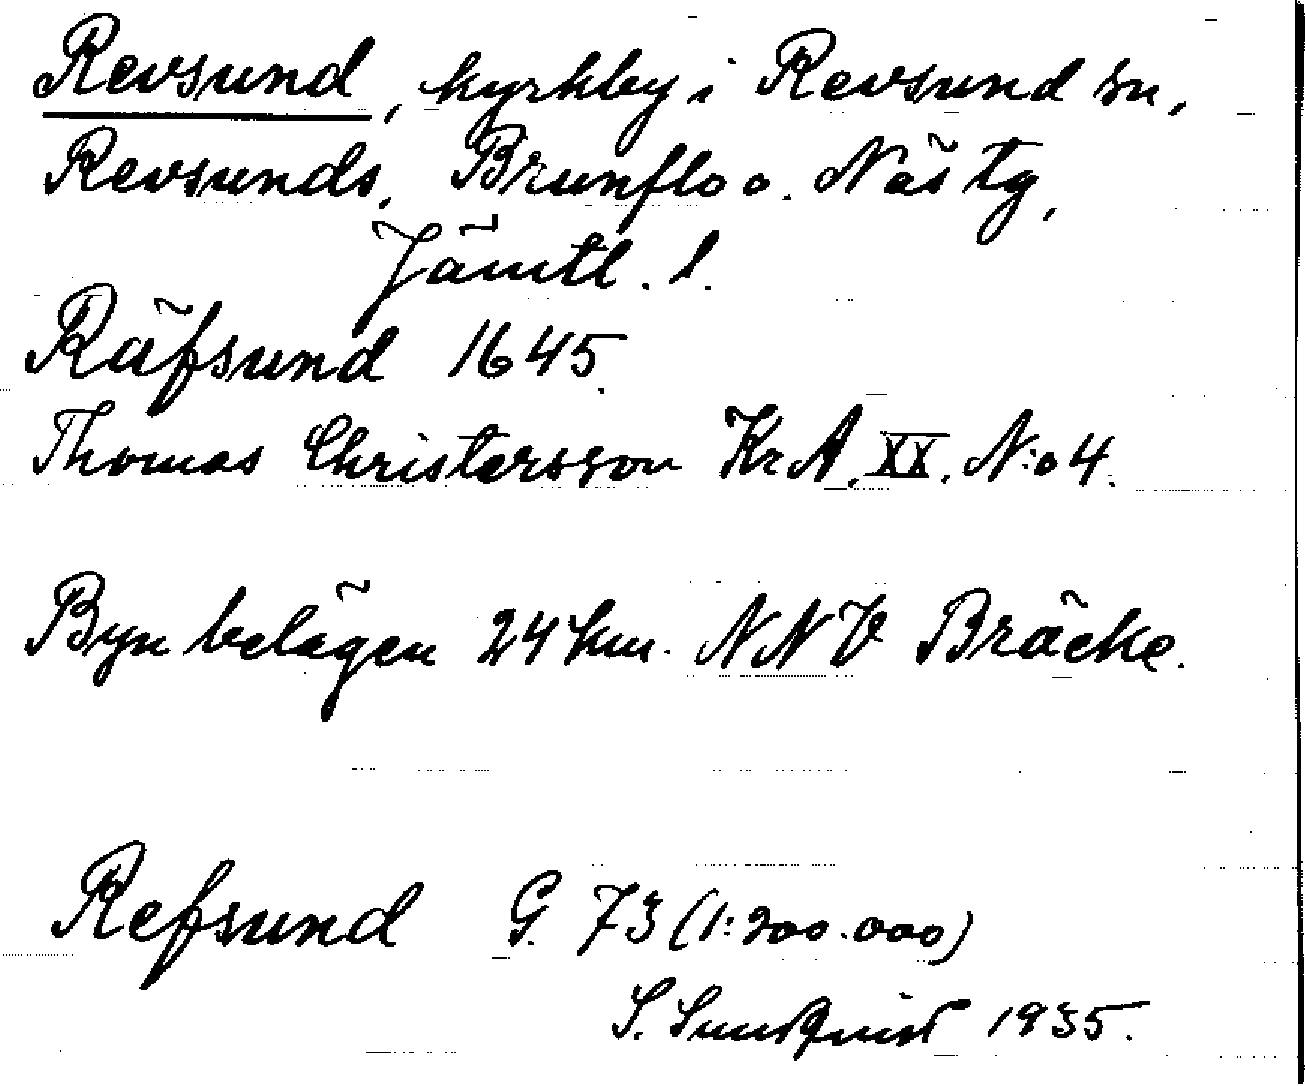 Revsund, kyrkby i Revsund sn,
Revsunds, Brunflo o. Näs tg,
Jämtl. l.
Räfsund 1645.
Thomas Christersson Kr A. XX. N:o 4.
Byn belägen 24 km. NNV Bräcke.
Refsund G. 73 (1:200.000)
S. Sundqvist 1935.